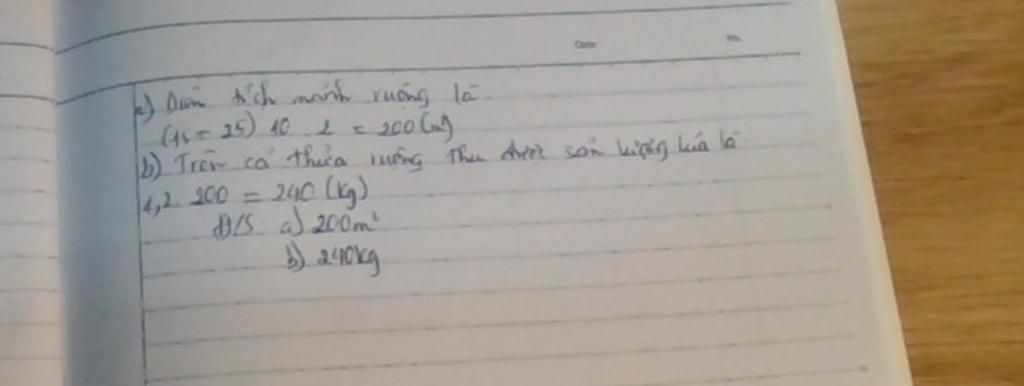 Date No.
a) Diện tích mảnh ruộng là
(15 = 25) 10 2 = 200 (m²)
b) Trên cả thửa ruộng thu được sản lượng lúa là
1,2. 200 = 240 (kg)
Đ/S a) 200m²
b) 240kg